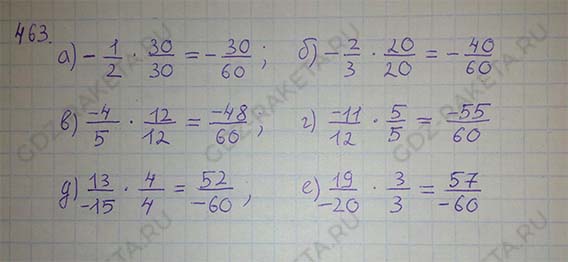 463.
а) -1/2 · 30/30 = -30/60; б) -2/3 · 20/20 = -40/60
в) -4/5 · 12/12 = -48/60; г) -11/12 · 5/5 = -55/60
д) 13/-15 · 4/4 = 52/-60; е) 19/-20 · 3/3 = 57/-60
GDZ-RAKETA.RU